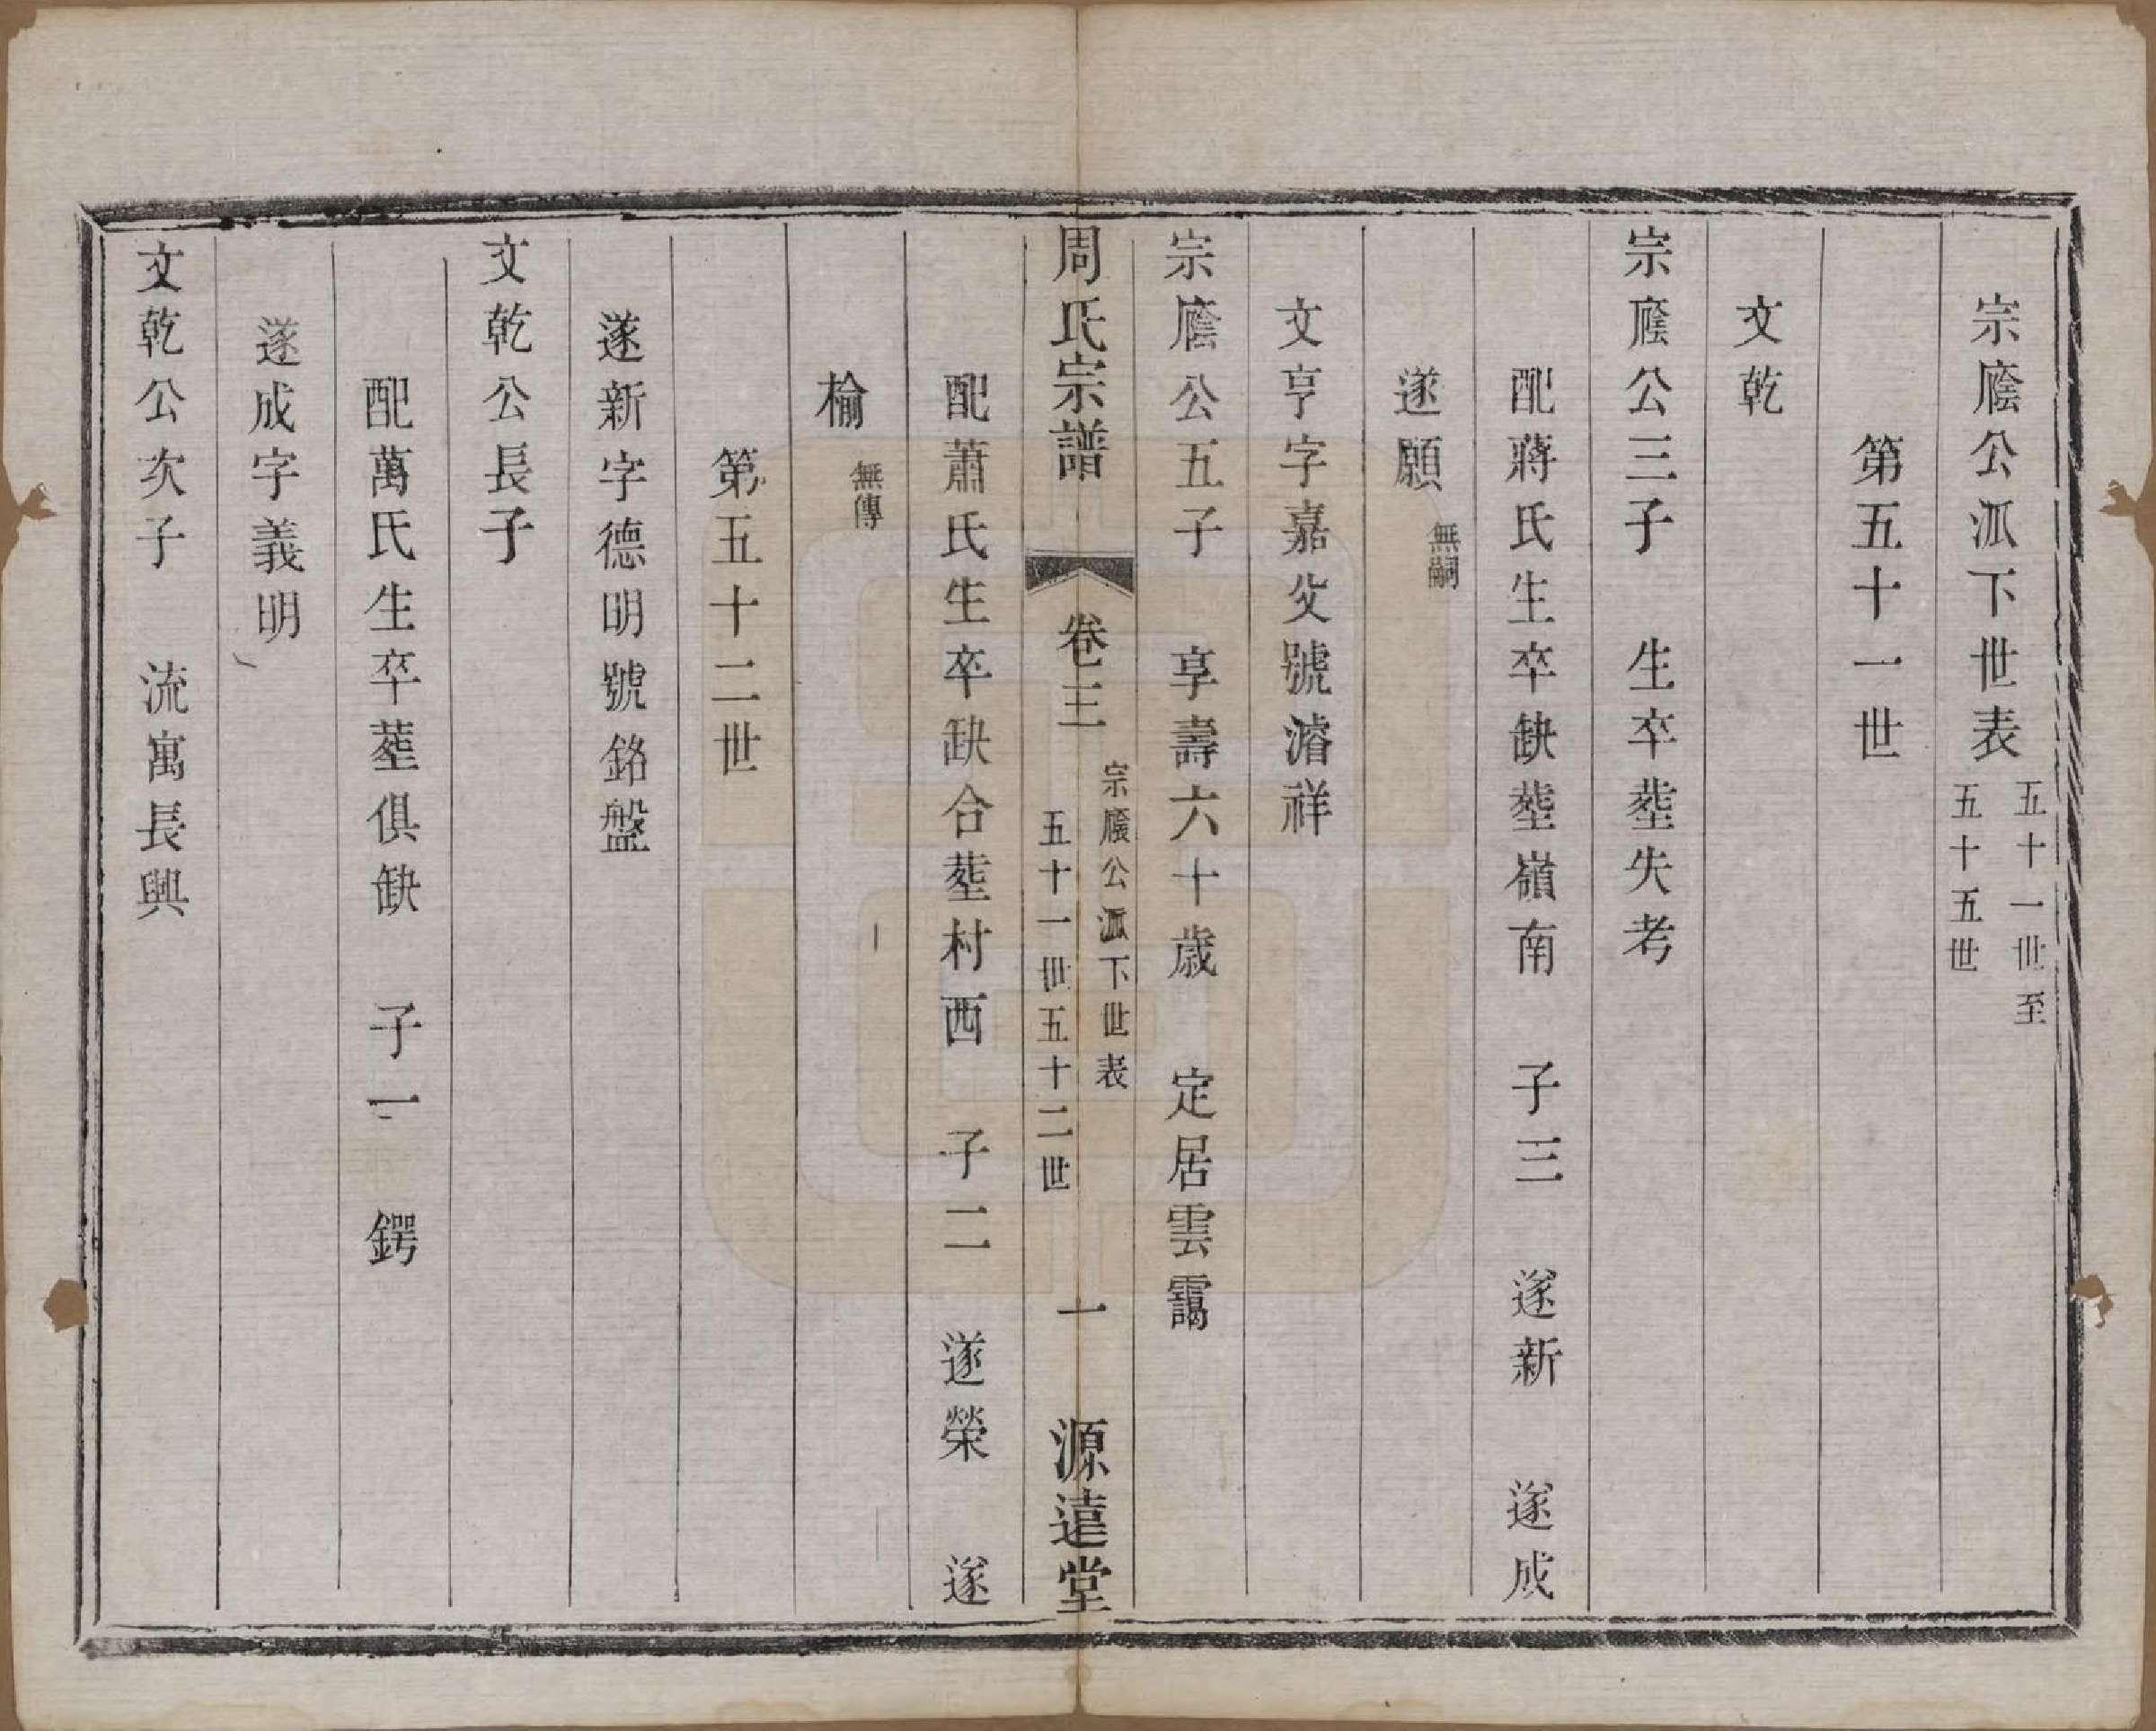 宗廕公派下世表 五十一世至五十五世
第五十一世
文乾
宗廕公三子 生卒塟失考
配蔣氏生卒缺塟嶺南 子三 遂新 遂成
遂願 無嗣
文亨字嘉文號濬祥
宗廕公五子 享壽六十歲 定居雲靄
周氏宗譜 卷三 宗廕公派下世表 五十一世五十二世 一 源遠堂
配蕭氏生卒缺合塟村西 子二 遂榮 遂
榆 無傳
第五十二世
遂新字德明號銘盤
文乾公長子
配萬氏生卒塟俱缺 子一 鍔
遂成字義明
文乾公次子 流寓長興